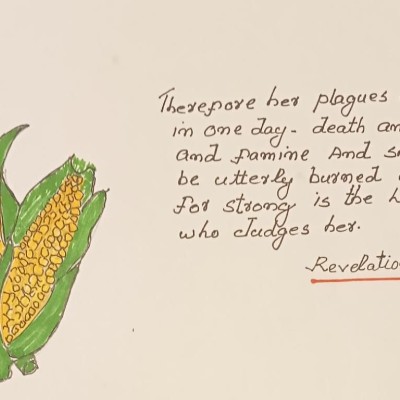 Therefore her plagues
in one day - death an
and famine And s
be utterly burned
for strong is the
who Judges her.
Revelatio